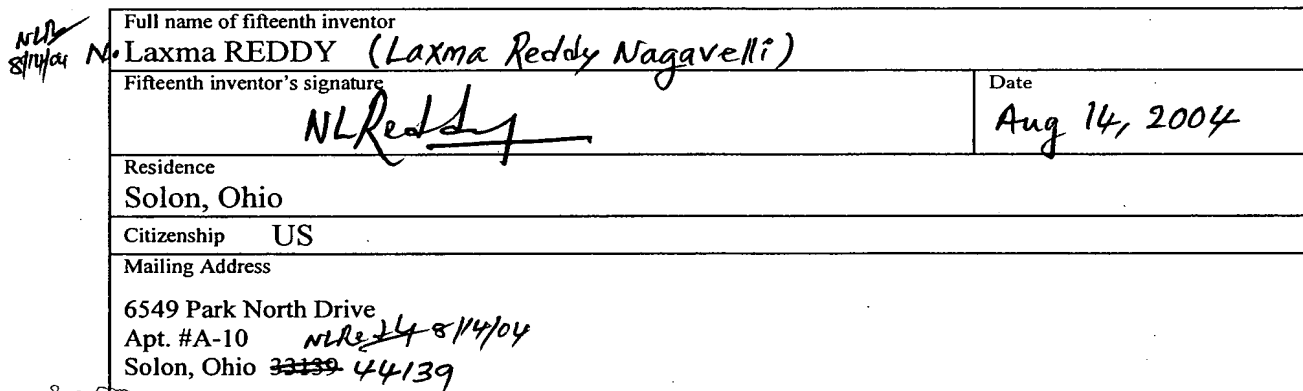 Full name of fifteenth inventor
NLR
8/14/04 N. Laxma REDDY (Laxma Reddy Nagavelli)
Fifteenth inventor's signature
Date
NLReddy
Aug 14, 2004
Residence
Solon, Ohio
Citizenship US
Mailing Address
6549 Park North Drive
Apt. #A-10 NLReddy 8/14/04
Solon, Ohio 33139 44139